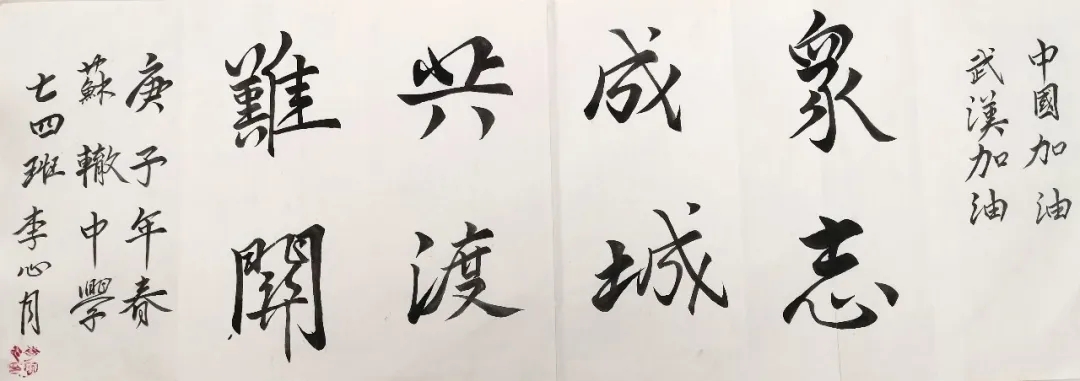 中國加油
武漢加油
衆志
成城
共渡
難關
庚子年春
蘇轍中學
七四班李心月